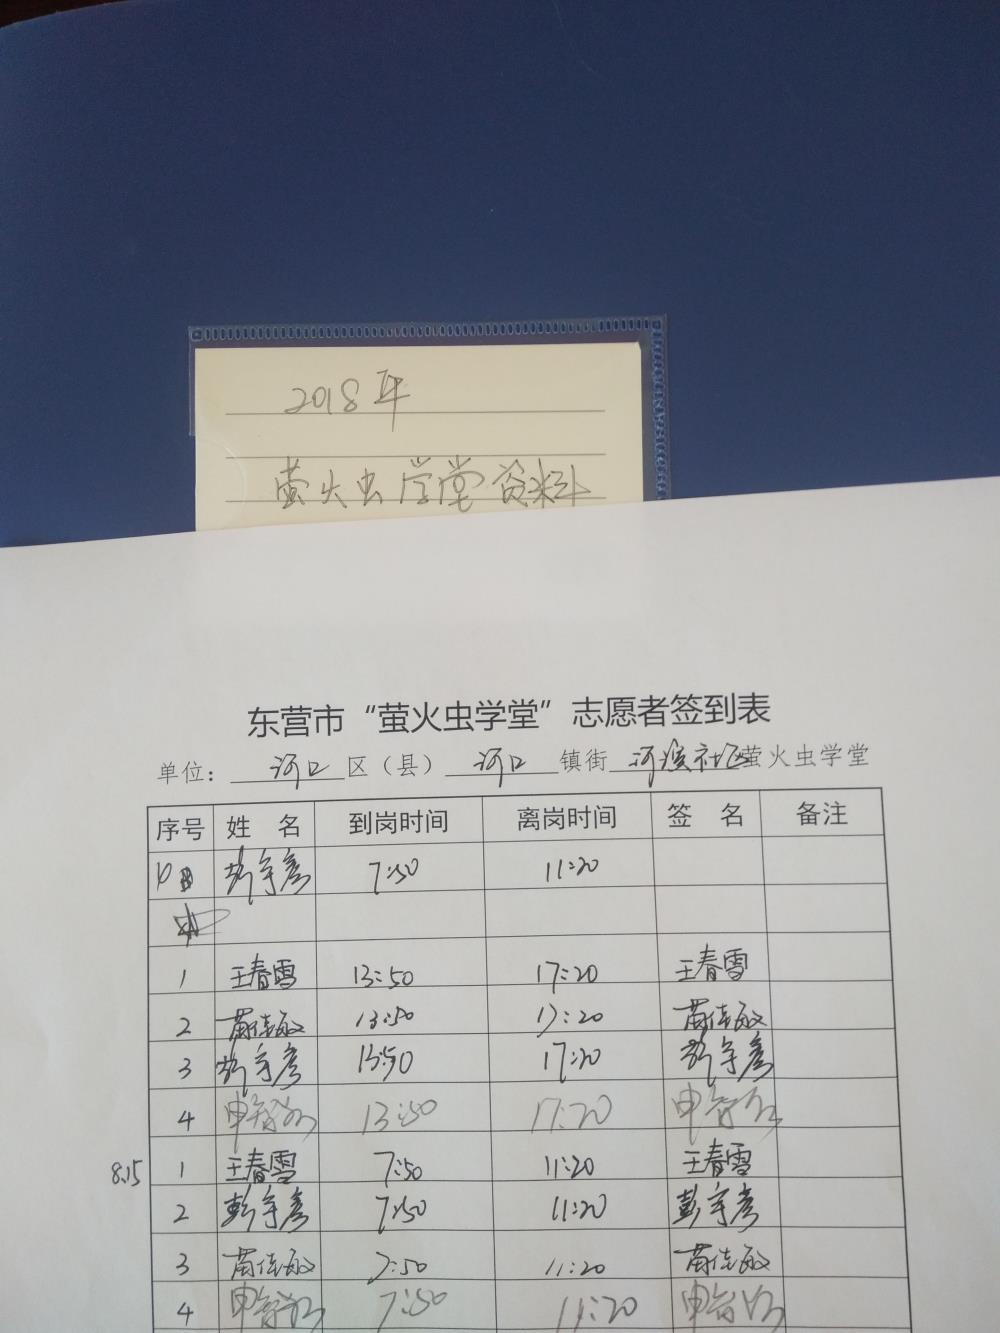 2018年
萤火虫学堂资料
东营市“萤火虫学堂”志愿者签到表
单位: 河口 区（县） 河口 镇街 河滨社区 萤火虫学堂
序号 姓 名 到岗时间 离岗时间 签 名 备注
彭宇彦 7:50 11:20
1 王春雪 13:50 17:20 王春雪
2 苗佳敏 13:50 17:20 苗佳敏
3 彭宇彦 13:50 17:20 彭宇彦
4 申 13:50 17:20 申
8.15 1 王春雪 7:50 11:20 王春雪
2 彭宇彦 7:50 11:20 彭宇彦
3 苗佳敏 7:50 11:20 苗佳敏
4 申 7:50 11:20 申